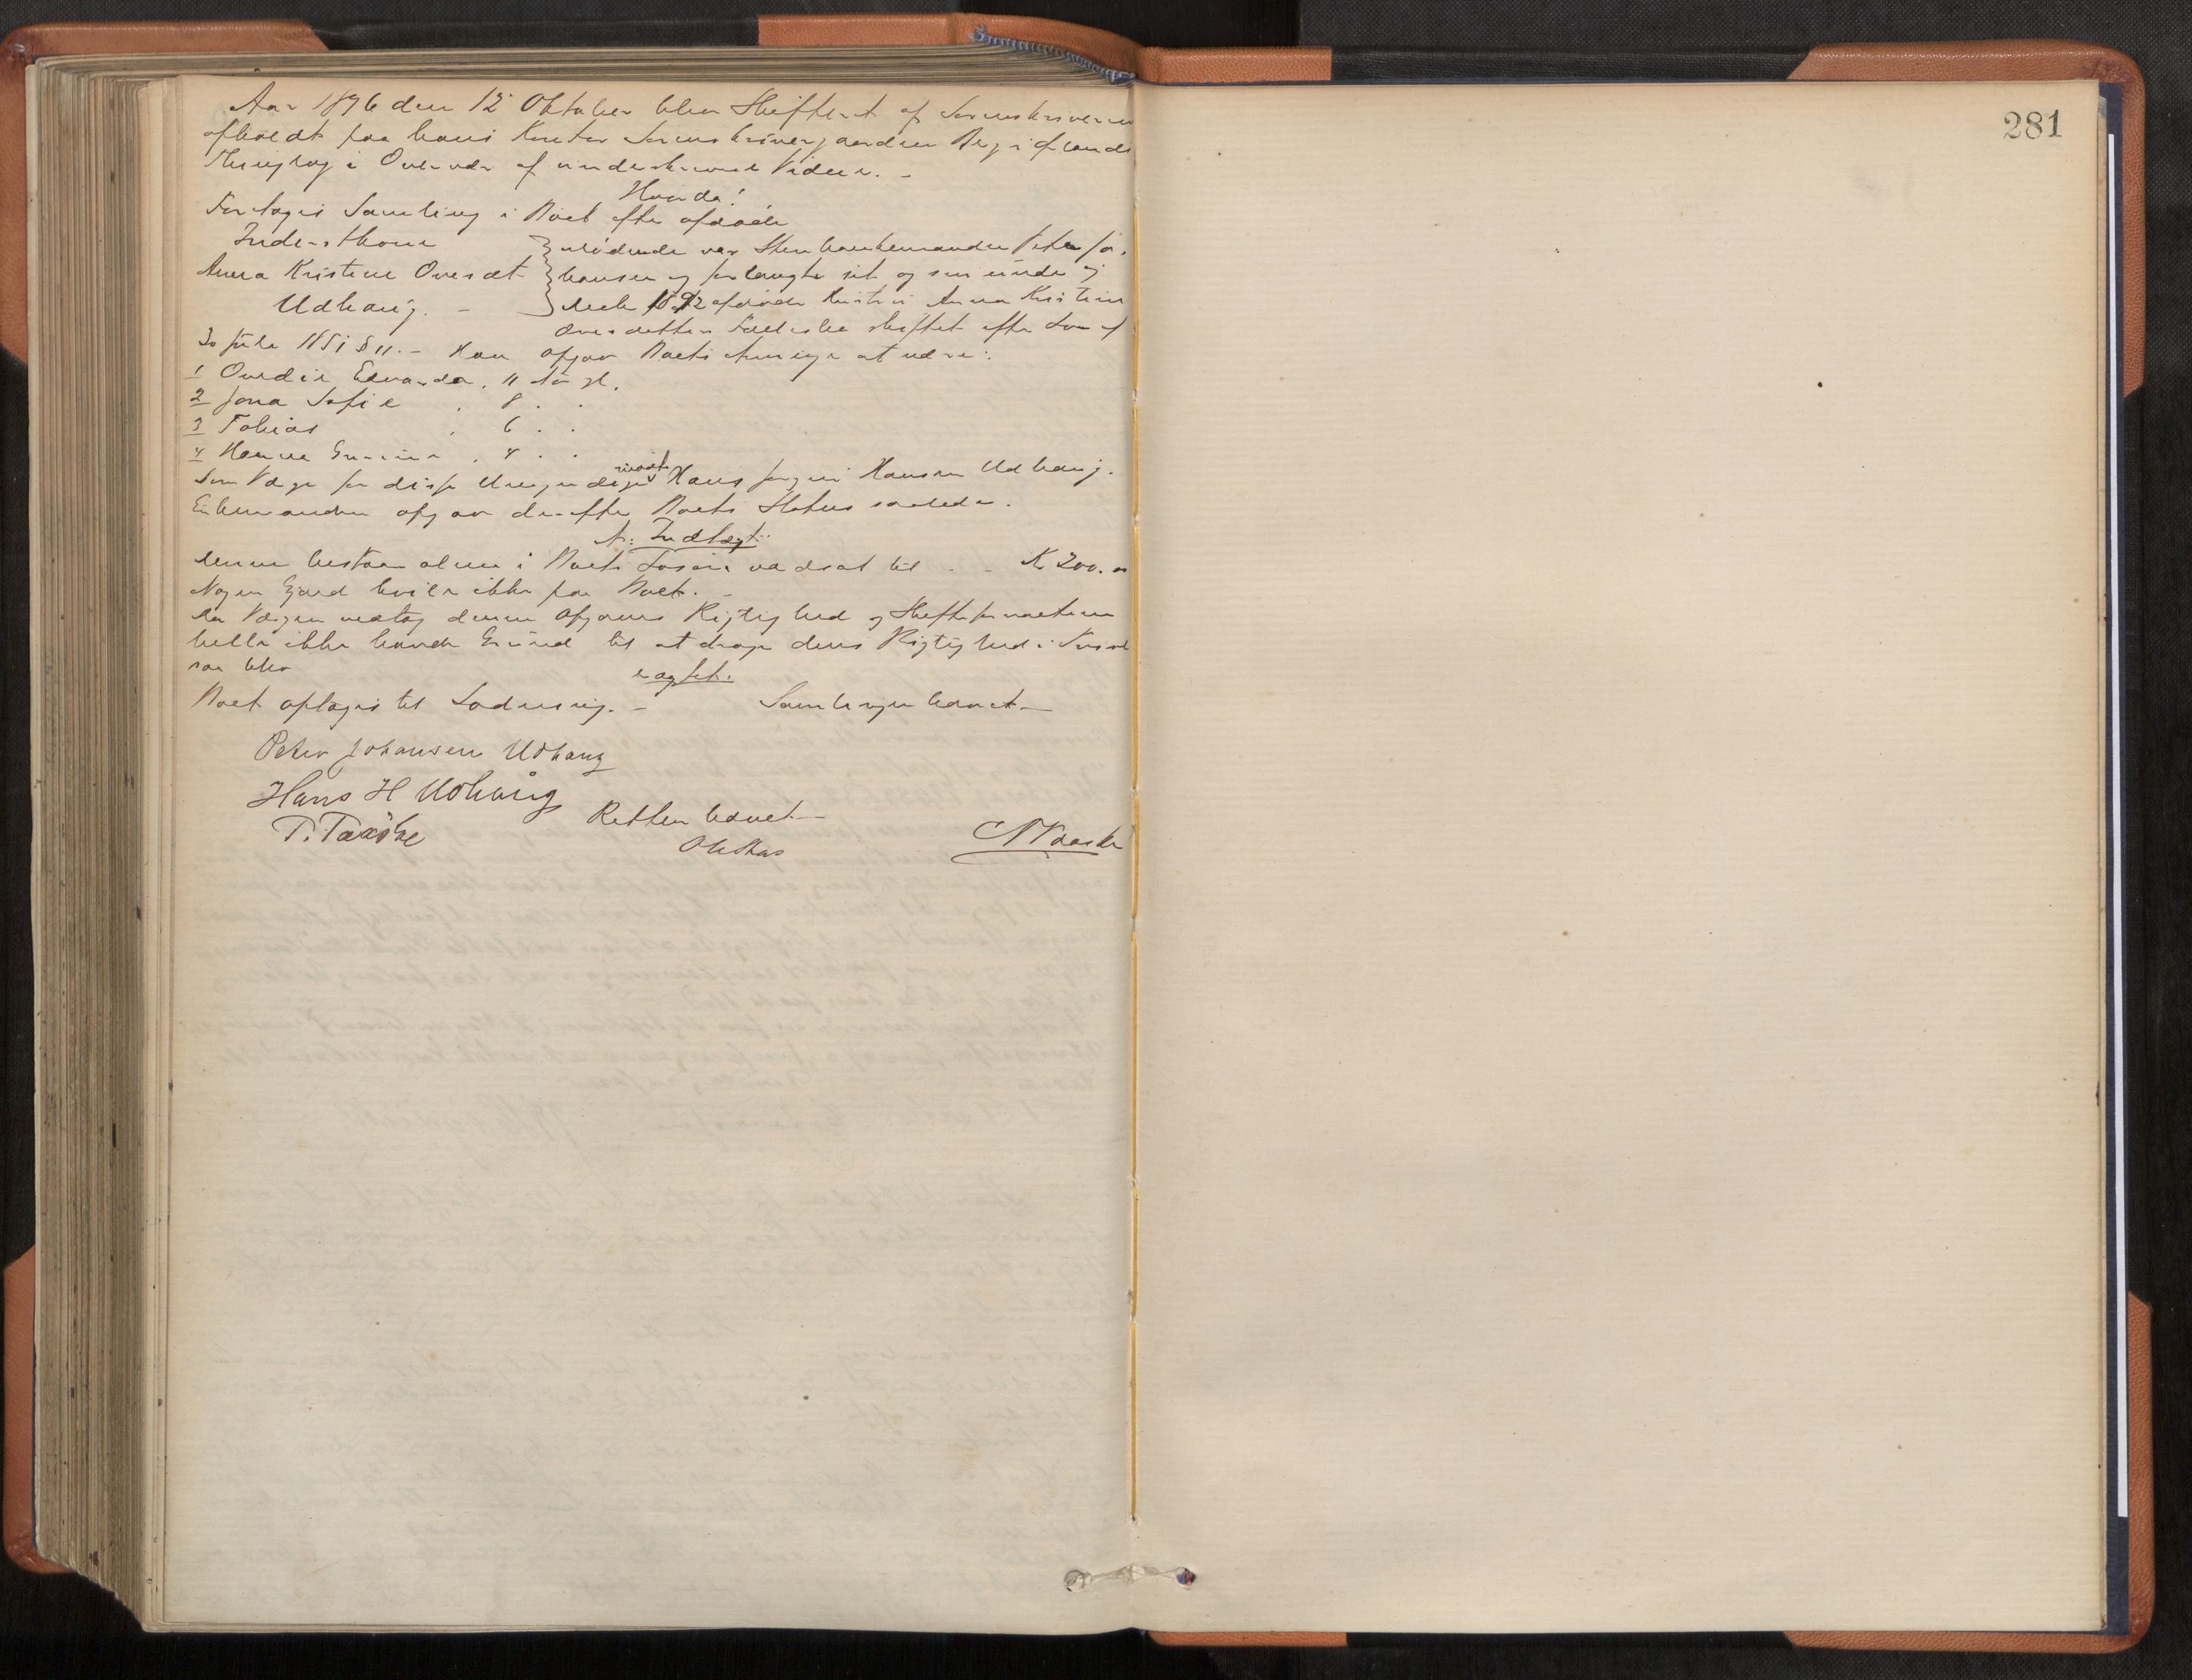 281
Aar 1896 den 12 Oktober blev Skifteret af Sorenskriveren
afholdt paa hans Kontor Sorenskrivergaarden
Thinglag i Overvær af underskrevne Vidner. -
Hvorda!
Foretoges Samling i Boet efter afdøde
Inderstkone
Anna Kristine Oversdt.
Udhaug. -
mødende var Peter Jo-
hansen og forlangte sit og sin under
1892 afdøde Hustru Anna Kristine
Oversdatters Fællesbo skiftet efter Lov af
30 Juli 1851 § 11. - Han opgav Boets Arvinger at være:
1 Ovedie Edvarda, 11 Aar gl.
2 Jona Sofie, 8 . .
3 Tobias, 6 . .
4 Hanna, 4 . .
Som Værge for disse Umyndige mødte Hans Jørgen Hansen Udhaug.
Enkemanden opgav derefter Boets Status saaledes.
A: Indtægt:
denne bestaar alene i Boets Løsøre værdsat til . . Kr 200.00
Nogen Gjæld hviler ikke paa Boet. -
da Værgen vedtog denne Opgaves Rigtighed og Skifteforvalteren
heller ikke havde Grund til at drage dens Rigtighed i Tvivl
saa blev
eragtet:
Boet optages til Slutning. - Samlingen hævet. -
Peter Johansen Udhaug
Hans H Udhaug
T. Taxåke Retten hævet. -